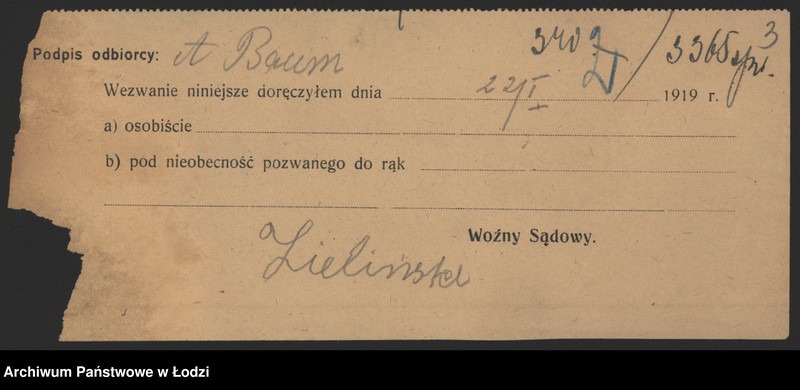 3
Podpis odbiorcy: A Baum
Wezwanie niniejsze doręczyłem dnia 22/I 1919 r.
a) osobiście
b) pod nieobecność pozwanego do rąk
Woźny Sądowy.
Zieliński
Archiwum Państwowe w Łodzi